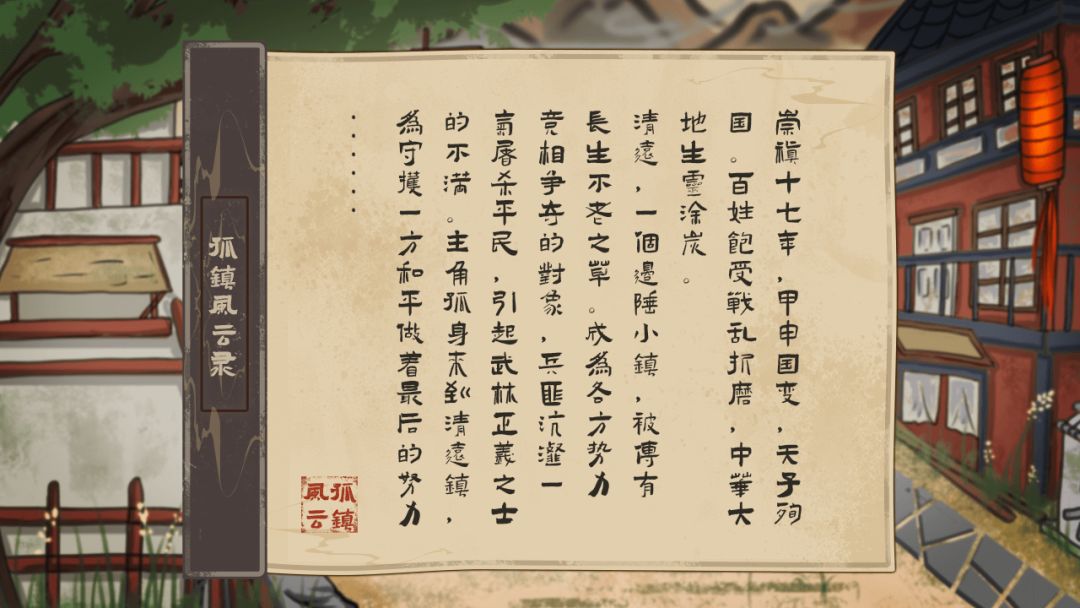 崇禎十七年，甲申国变，天子殉
国。百姓飽受戰乱折磨，中華大
地生靈涂炭。
清遠，一個邊陲小鎮，被傳有
長生不老之草。成為各方势力
竞相争夺的對象，兵匪沆瀣一
氣屠杀平民，引起武林正義之士
的不满。主角孤身來到清遠鎮，
為守護一方和平做着最后的努力
······
孤鎮風云
孤鎮風云录